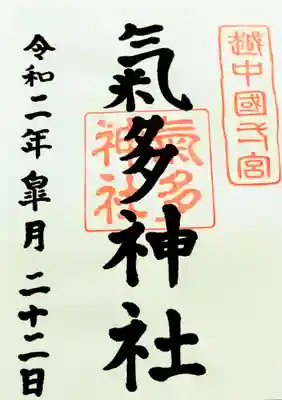 越中國一宮
氣多神社
氣多神社
令和二年 皐月 二十二日